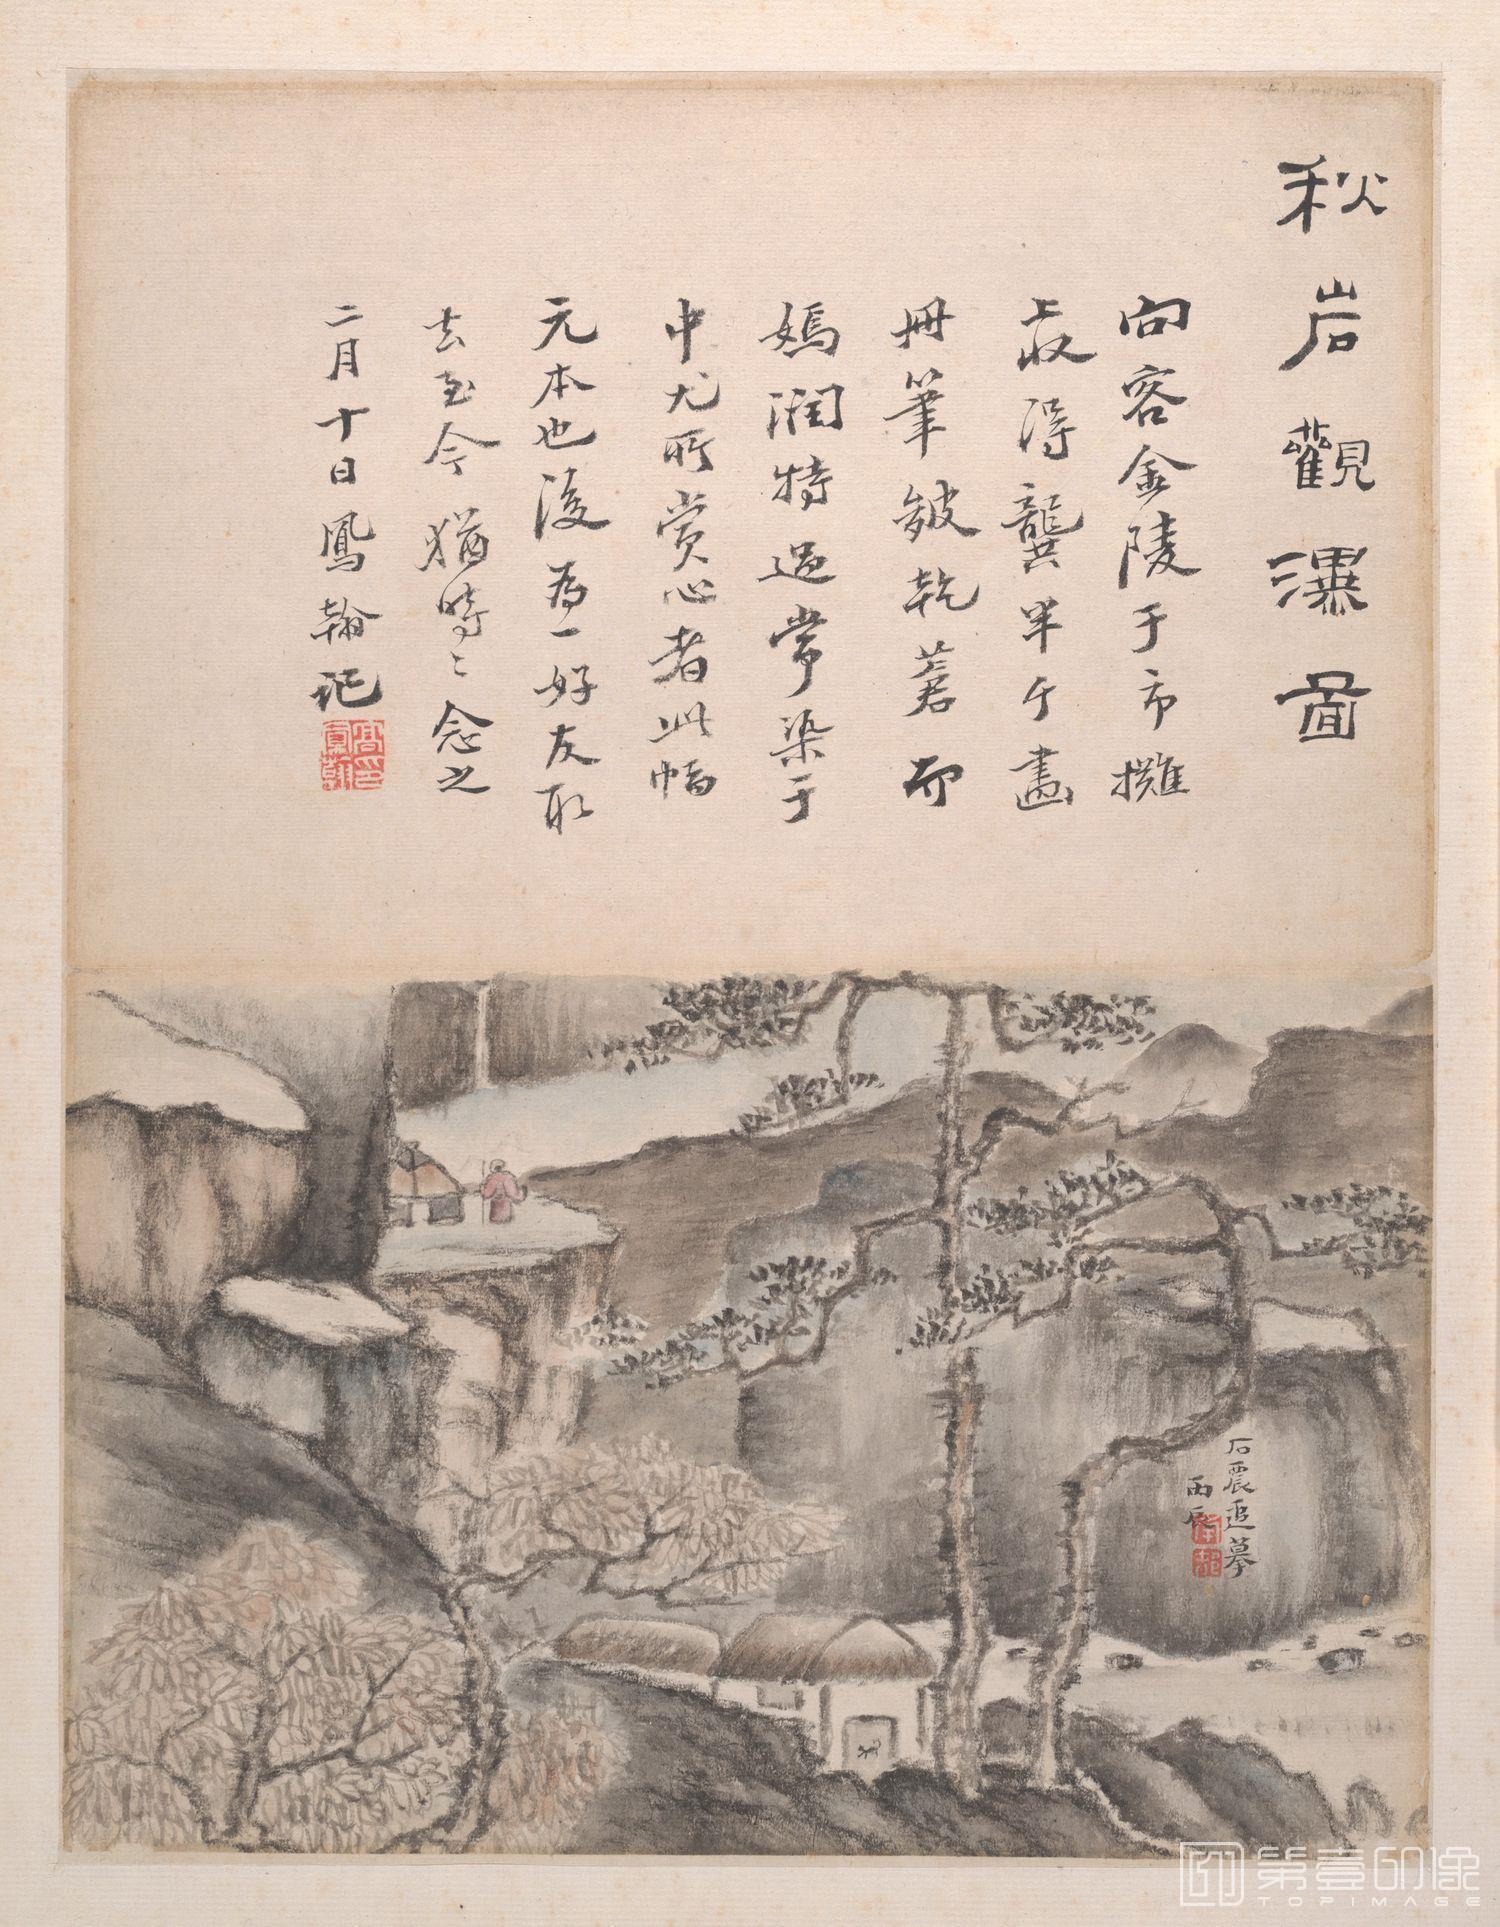 秋岩觀瀑圖
向客金陵于市攤
上收得龔半千畫
冊筆皴乾蒼而
嫣潤特過常染于
中尤所赏心者此幅
元本也後为一好友取
去至今猶時〻念之
二月十日鳳翰記
石震追摹
丙辰
第壹印像
TOPIMAGE